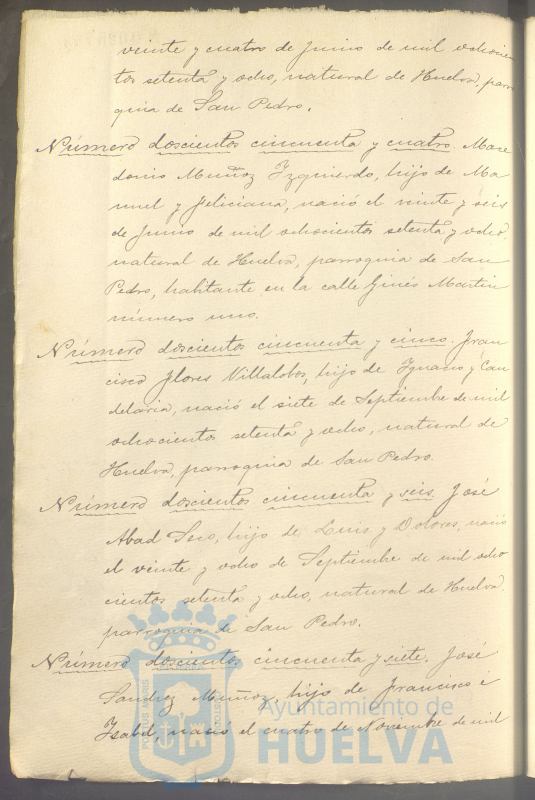 veinte y cuatro de Junio de mil ochocien
tos setenta y ocho, natural de Huelva, parro
quia de San Pedro.
Número doscientos cincuenta y cuatro. Mace
donio Muñoz Izquierdo, hijo de Ma
nuel y Feliciana, nació el veinte y seis
de Junio de mil ochocientos setenta y ocho,
natural de Huelva, parroquia de San
Pedro, habitante en la calle Ginés Martin
número uno.
Número doscientos cincuenta y cinco. Fran
cisco Flores Villalobos, hijo de Ignacio y Can
delaria, nació el siete de Septiembre de mil
ochocientos setenta y ocho, natural de
Huelva, parroquia de San Pedro.
Número doscientos cincuenta y seis. José
Abad Seco, hijo de Luis y Dolores, nació
el veinte y ocho de Septiembre de mil ocho
cientos setenta y ocho, natural de Huelva,
parroquia de San Pedro.
Número doscientos cincuenta y siete. José
Sanchez Muñoz, hijo de Francisco é
Isabel, nació el cuatro de Noviembre de mil
Ayuntamiento de
HUELVA